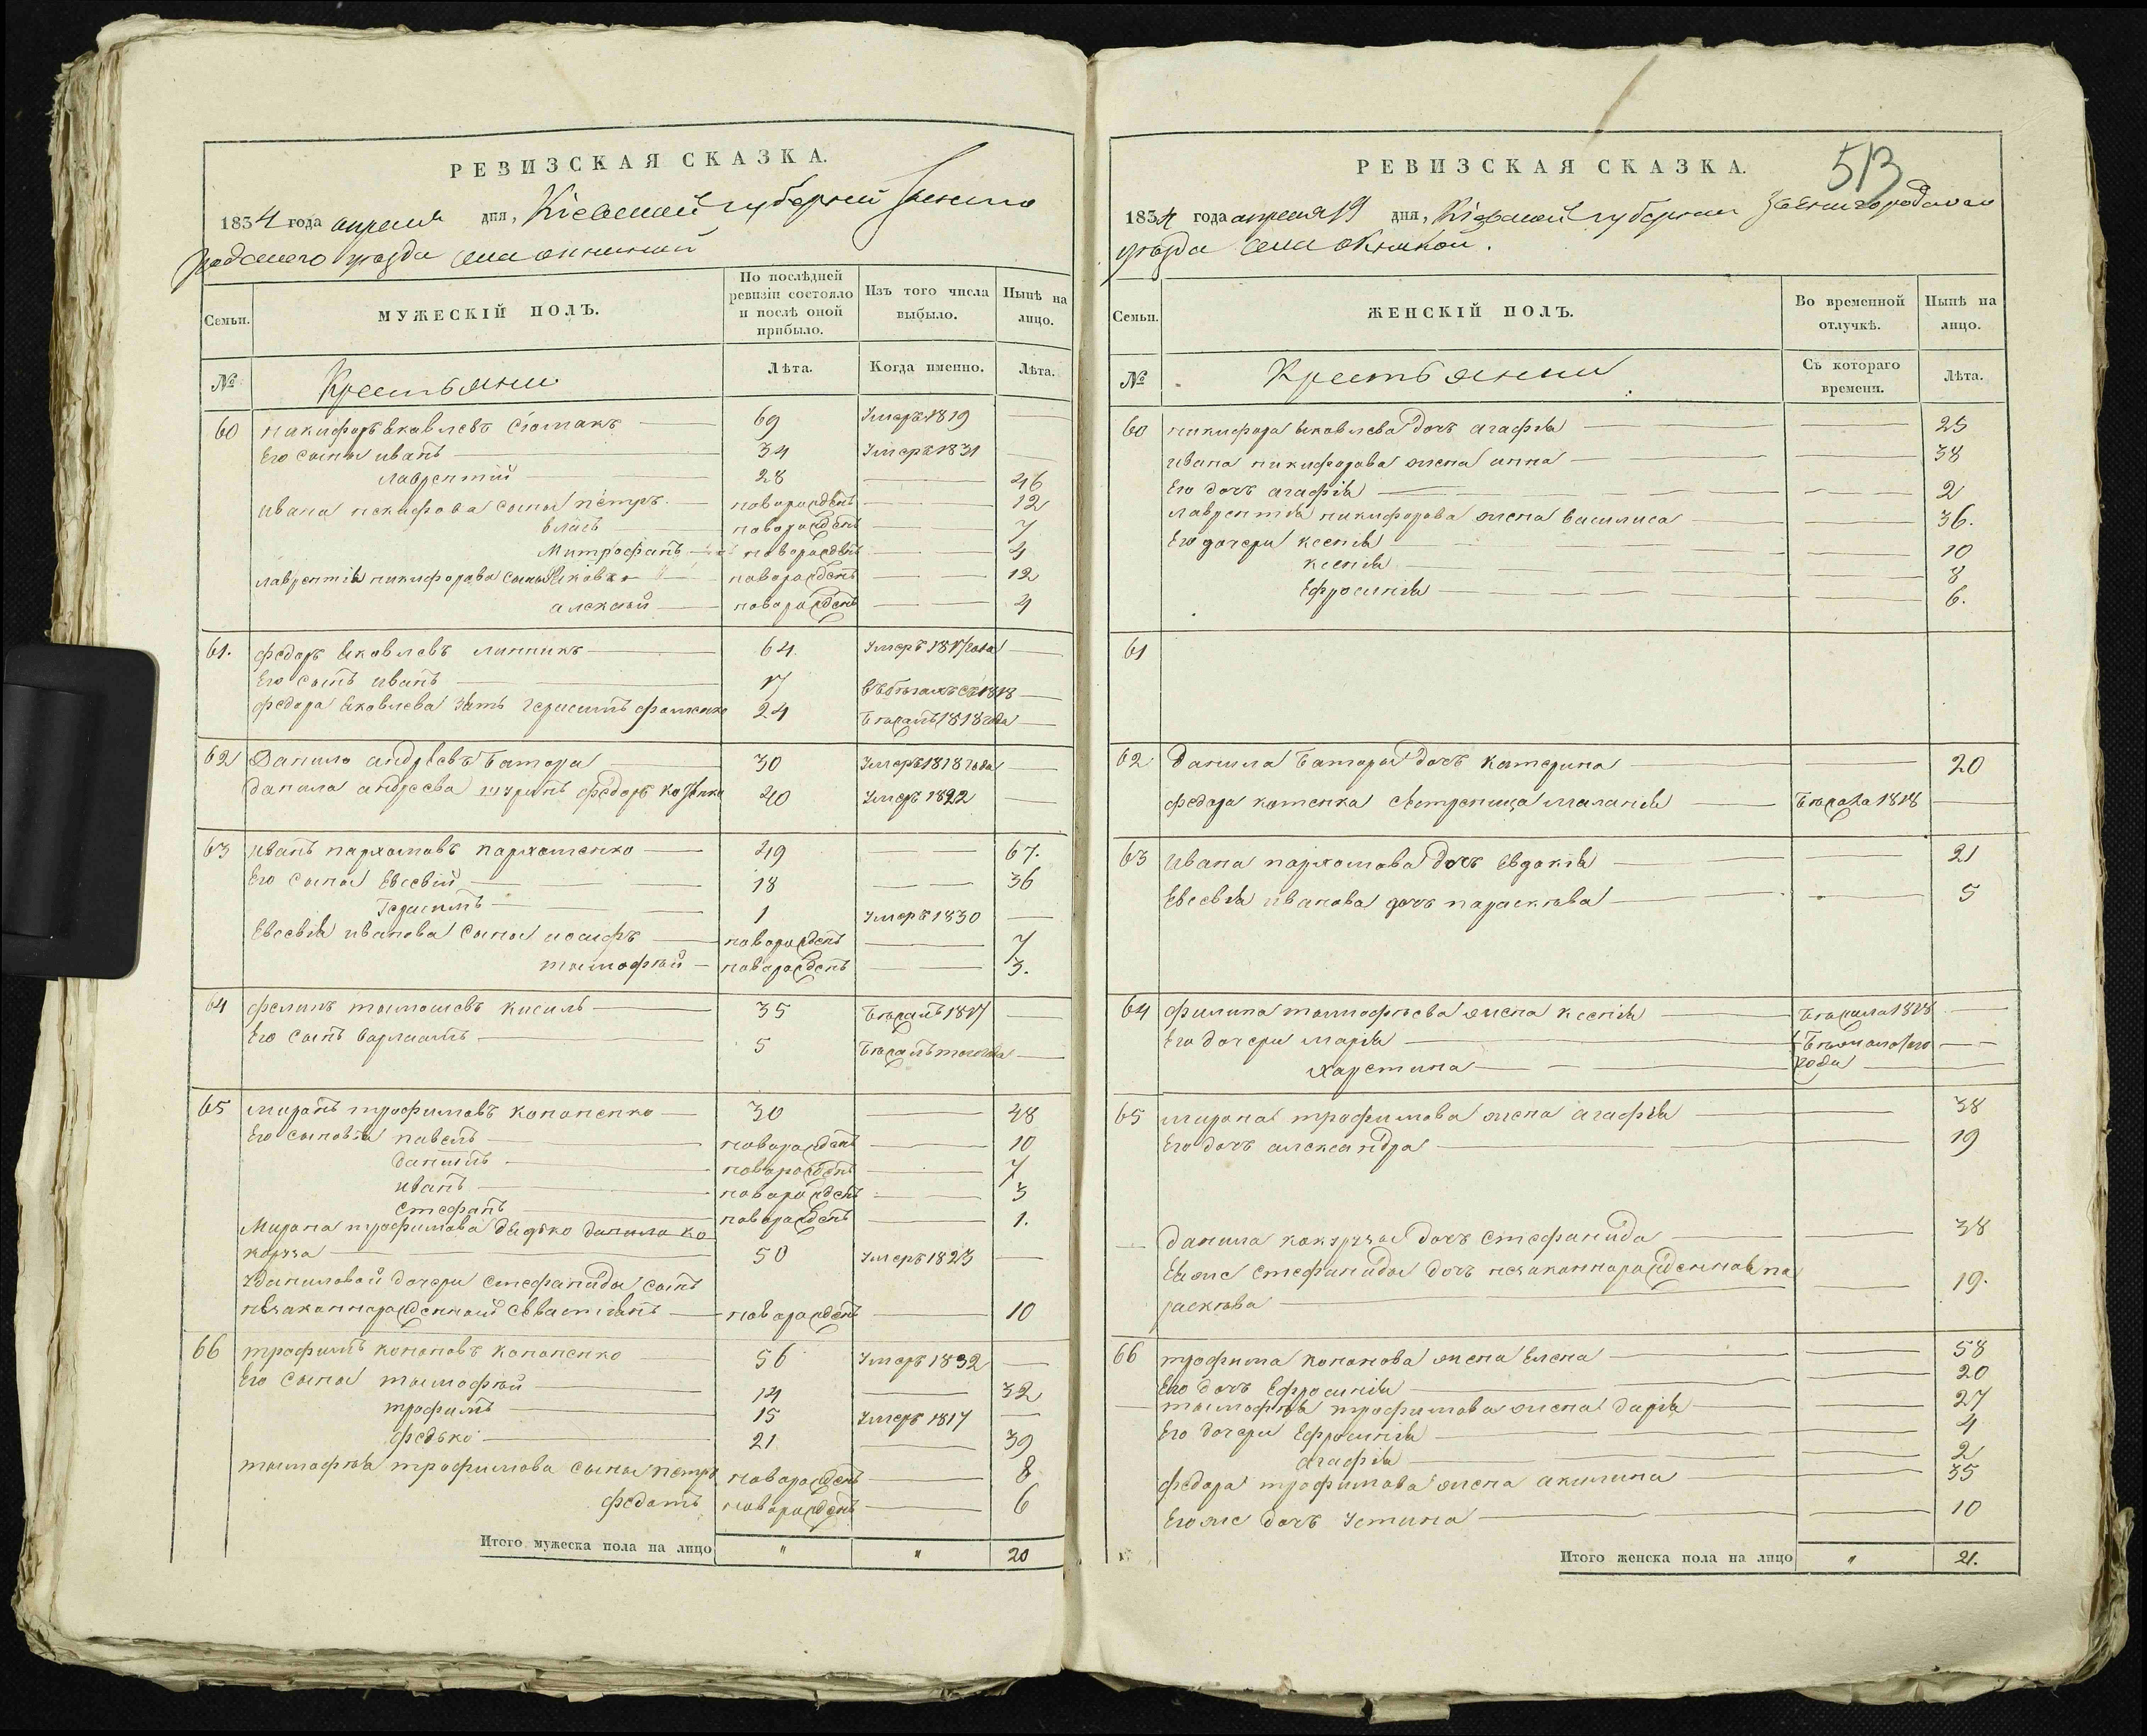 РЕВИЗСКАЯ СКАЗКА.
1834 года апреля дня, Кіевской губерніи
уезда села
Семьи. МУЖЕСКІЙ ПОЛЪ. По послѣдней ревизіи состояло и послѣ оной прибыло. Изъ того числа выбыло. Нынѣ на лицо.
№ Крестьяни Лѣта. Когда именно. Лѣта.
60 никифоръ яковлевъ 69 умеръ 1819
Его сыны иванъ 34 умеръ 1831
лаврентій 28 46
ивана никифорова сыны петръ новорожденъ 12
власъ новорожденъ 7
митрофанъ новорожденъ
лаврентія никифорова сыны новорожденъ 12
алексѣй новорожденъ 4
61. федоръ яковлевъ линникъ 64 умеръ 1817 года
Его сынъ иванъ 17 въ бѣгахъ съ 1818
федора яковлева зять герасимъ 24 бѣжалъ 1818 года
62 Данило андреевъ Батора 30 умеръ 1818 года
Данила андреева шуринъ федоръ 40 умеръ 1822
63 иванъ пархомовъ пархоменко 49 67.
Его сыны Евсевій 18 36
Герасимъ 1 умеръ 1830
Евсевія иванова сыны иосифъ новорожденъ 7
тымофѣй новорожденъ 3.
64 кисиль 35 бѣжалъ 1817
Его сынъ варлаамъ 5 бѣжалъ
65 миронъ трофимовъ кононенко 30 48
Его сыновья павелъ новорожденъ 10
данилъ новорожденъ 7
иванъ новорожденъ 3
стефанъ новорожденъ 1.
Мирона трофимова дядько данило ко
50 умеръ 1823
даниловой дочери стефаниды сынъ
незаконнорожденный новорожденъ 10
66 трофимъ кононовъ кононенко 56 умеръ 1832
Его сыны тымофѣй 14 32
трофимъ 15 умеръ 1817
федько 21 39
тымофѣя трофимова сыны петръ новорожденъ 8
федотъ новорожденъ 6
Итого мужеска пола на лицо " " 20
РЕВИЗСКАЯ СКАЗКА.
513
1834 года апреля 19 дня, Кіевской губерніи Звенигородскаго
уезда села
Семьи. ЖЕНСКІЙ ПОЛЪ. Во временной отлучкѣ. Нынѣ на лицо.
№ Крестьянки Съ котораго времени. Лѣта.
60 никифора яковлева дочь агафія 25
ивана никифорова жена анна 38
Его дочь агафія 2
лаврентія никифорова жена василиса 36.
Его дочери ксенія 10
ксенія 8
Ефросинія 6.
61
62 Данила Баторы дочь катерина 20
федора маланія бежала 1818
63 ивана пархомова дочь евдокія 21
Евсевія иванова дочь параскева 5
64 филипа тымофѣева жена ксенія бежала 1818
Его дочери марія
харстина года
65 мирона трофимова жена агафія 38
Его дочь александра 19
данила дочь стефанида 38
Ея же стефаниды дочь незаконнорожденная па
раскева 19.
66 трофима кононова жена елена 58
Его дочь Ефросинія 20
тымофѣя трофимова жена дарія 27
Его дочери Ефросинія 4
агафія 2
федора трофимова жена акилина 35
Его же дочь устина 10
Итого женска пола на лицо " 21.